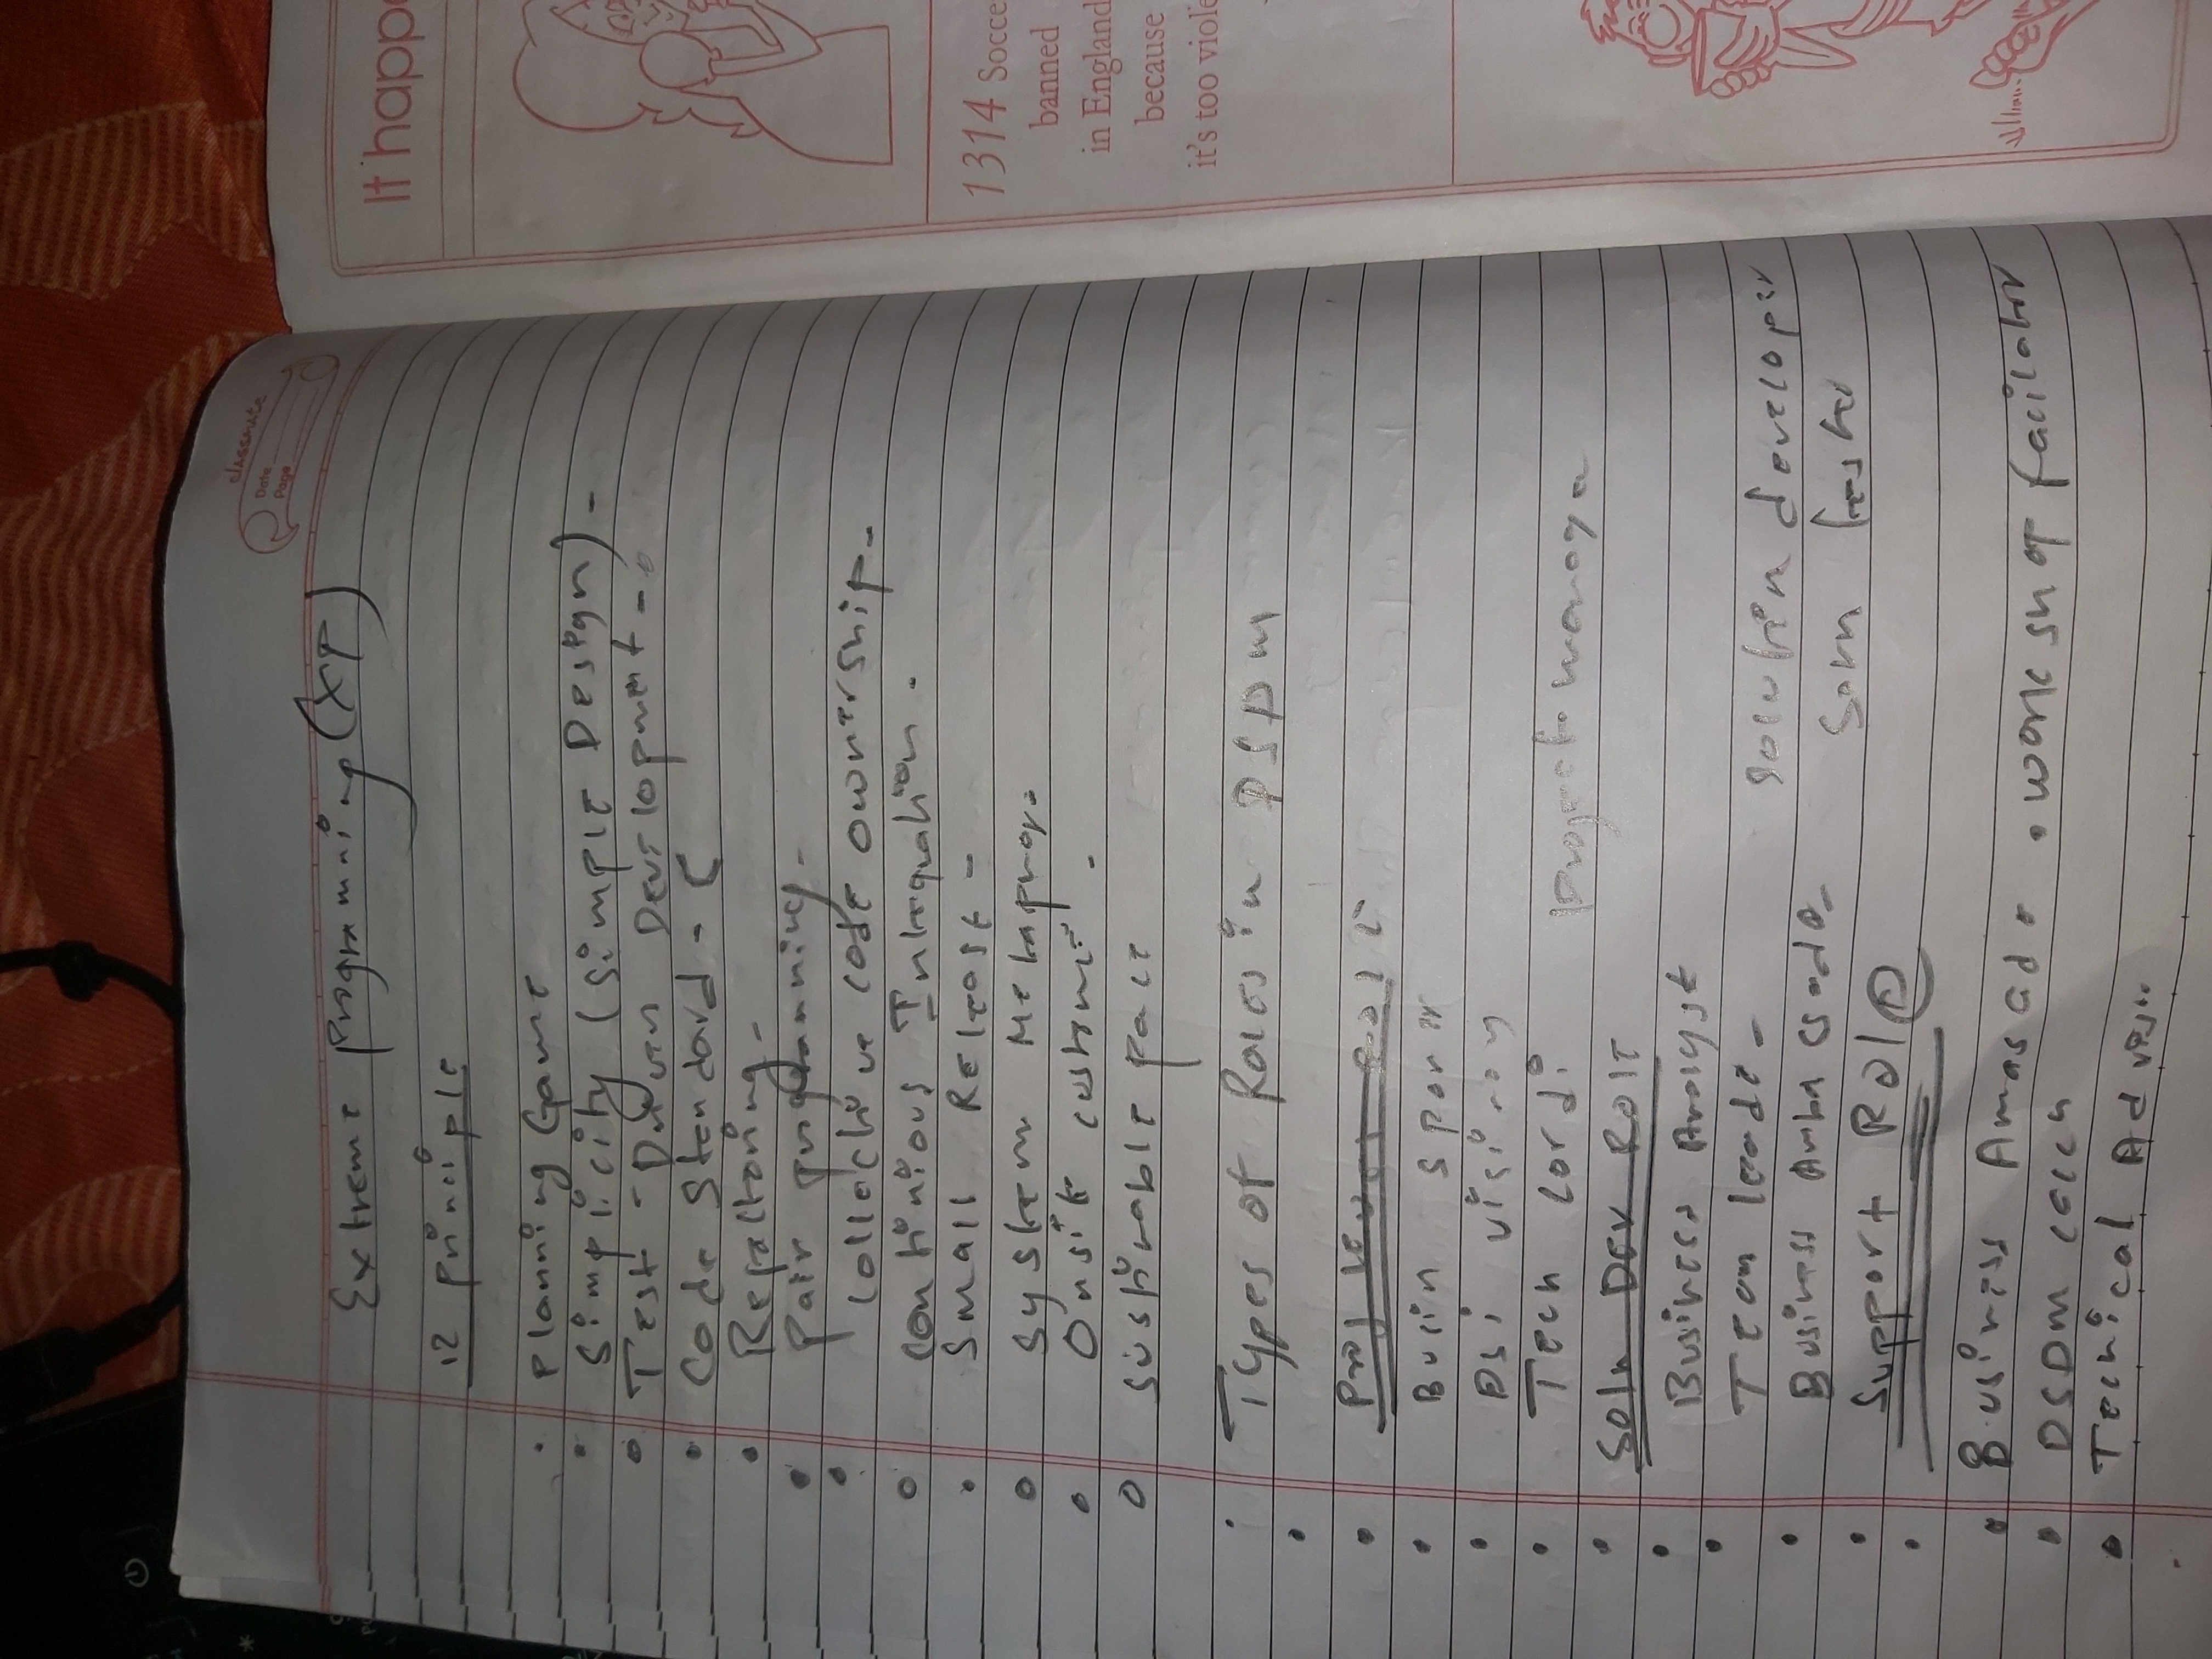 classmate
Date
Page
Extreme Programming (XP)
12 Principle
Planning Game
Simplicity (Simple Design) -
Test - Driven Development -
Code Standard -
Refactoring -
Pair programming -
Collective code ownership -
Continious Integration -
Small Release -
System Metaphor -
Onsite custome -
Sustinable pace
Types of Roles in DSDM
Proj level Role
Busin
Tech Cordi Project managa
Soln Dev Role
Business Analyst
Team leade - Solution developer
Business Ambassado - Soln tester
Support Role
Business Amasado • workshop facilator
DSDM coach
Techical Advis
It happe
1314 Socce
banned
in England
because
it's too viole